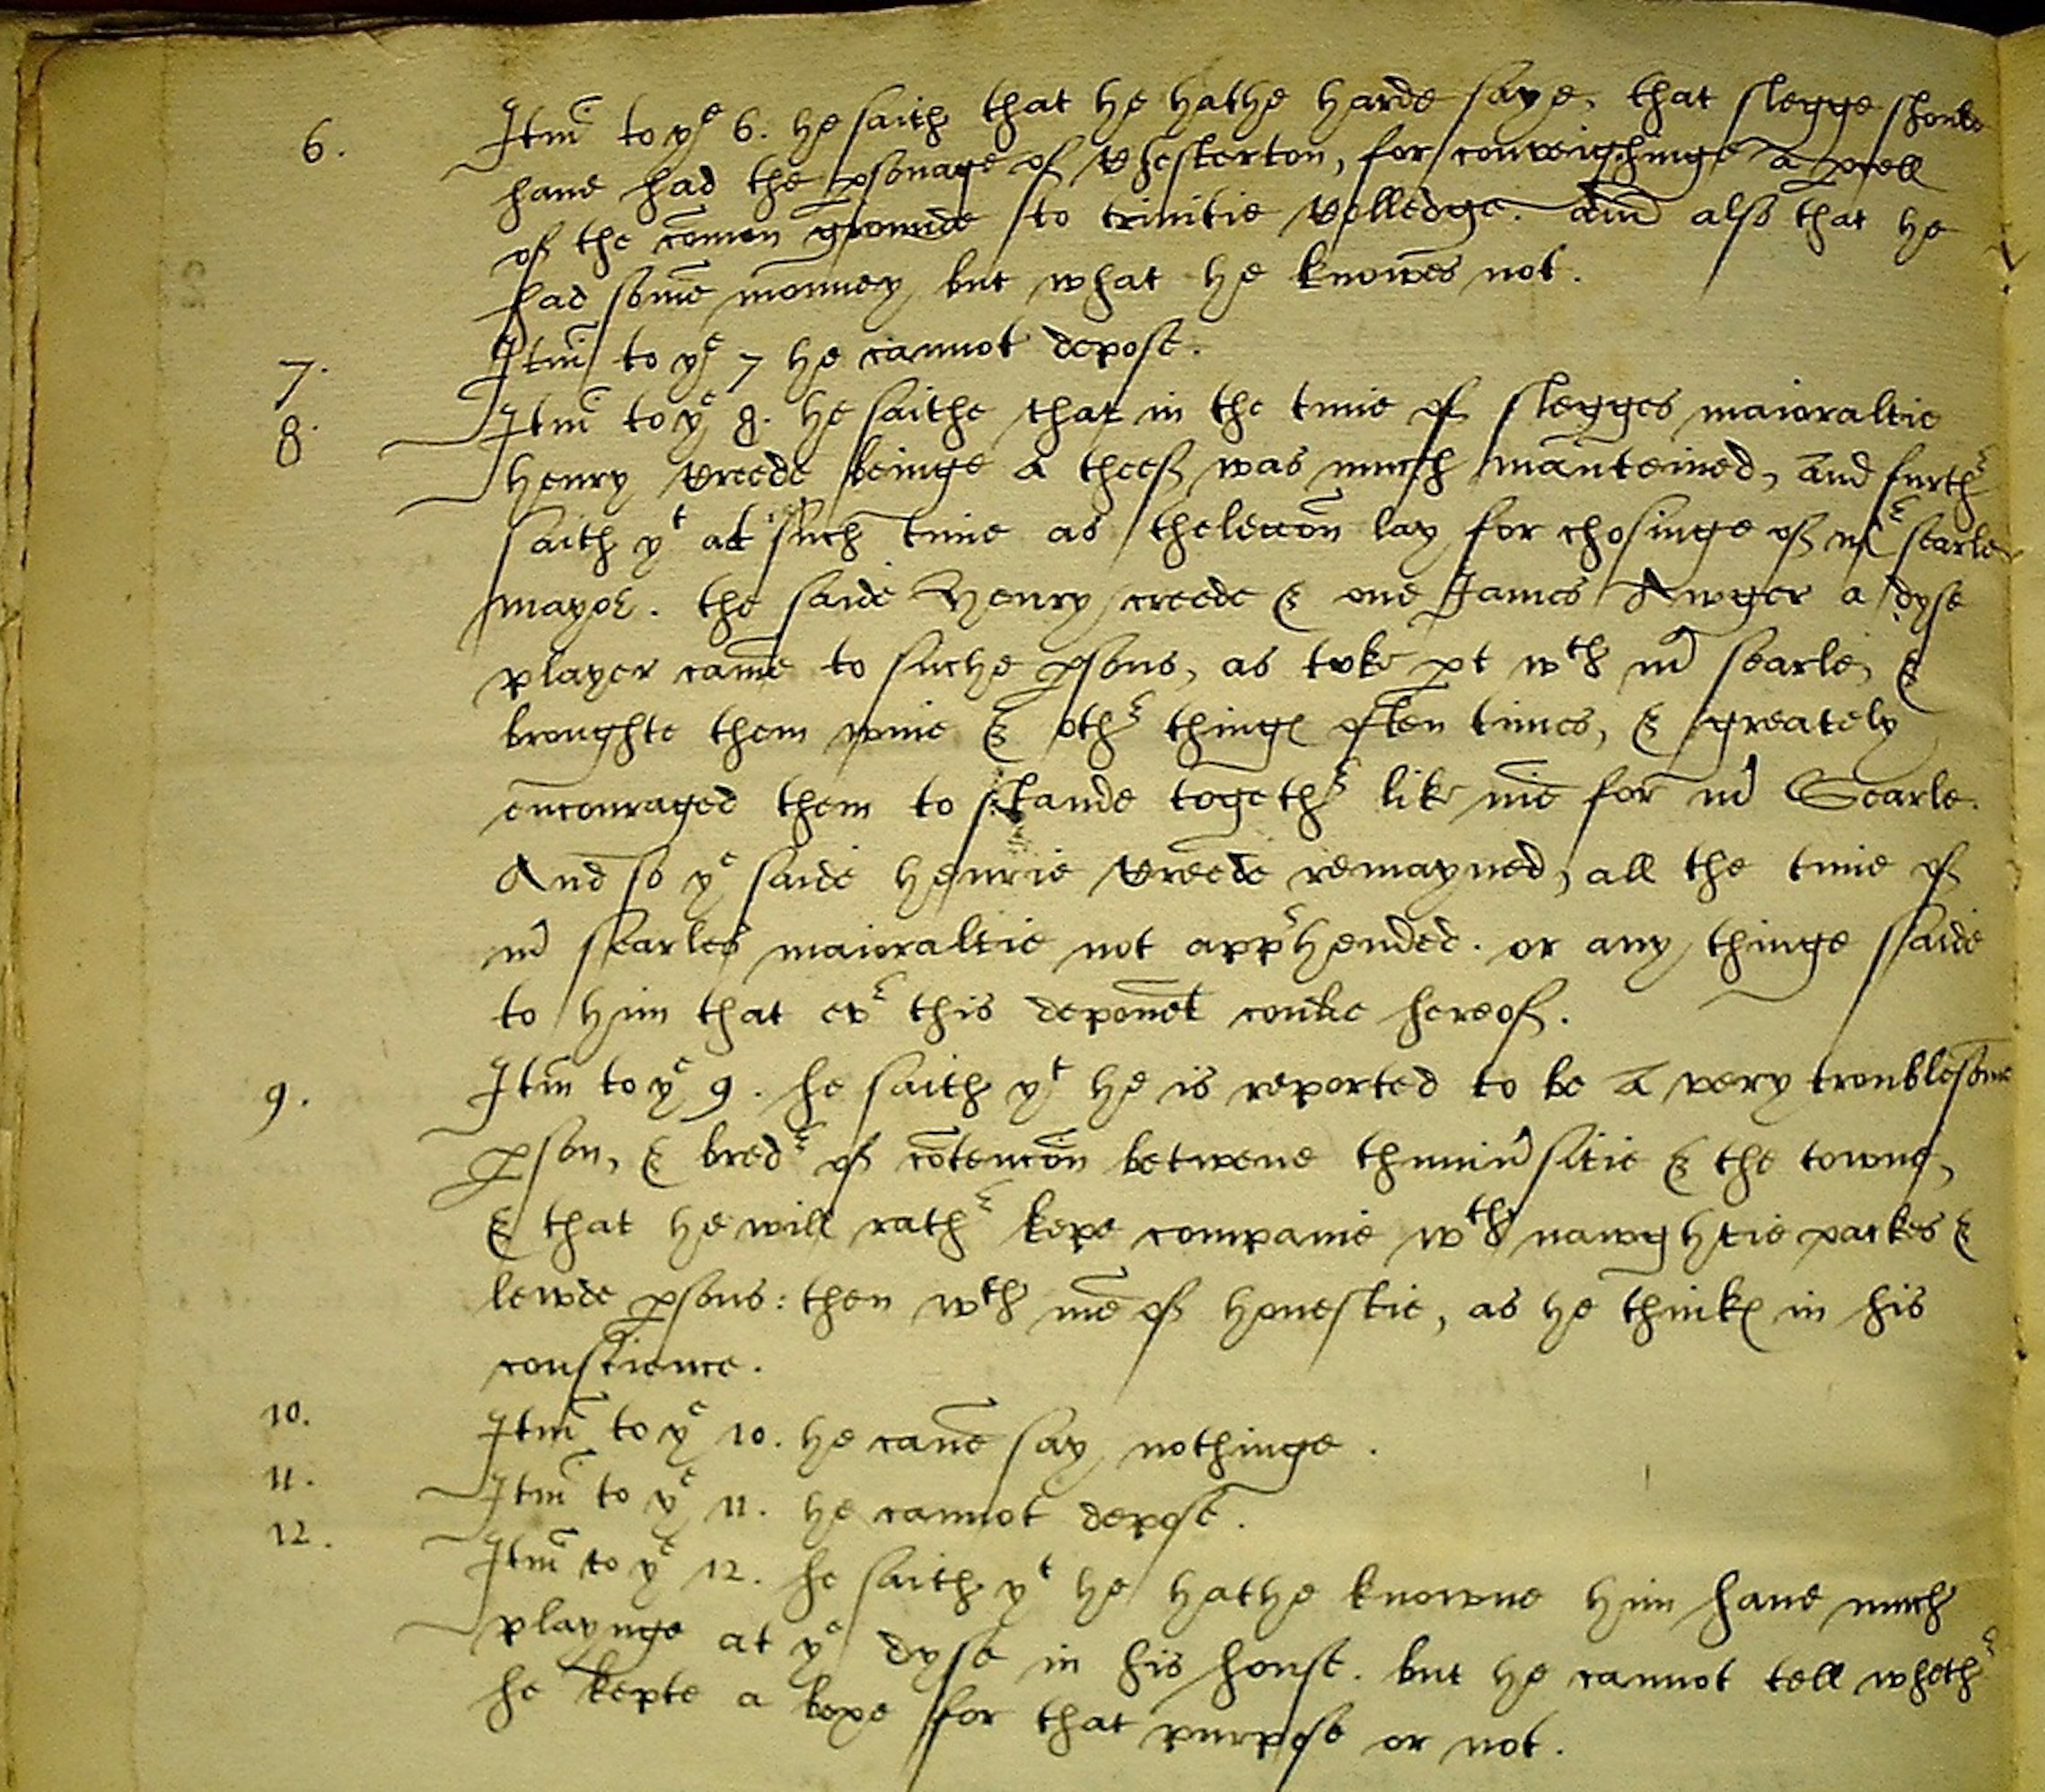 6. Itm̄ to yᵉ 6. he saith that he hathe harde saye, that slegge shoulde
haue had the psonage of Chesterton, for conveighinge a pcell
of the com̄on grounde to trinitie Colledge. And also that he
had some monney but what he knowes not.
7. Itm̄ to yᵉ 7 he cannot depose.
8. Itm̄ to yᵉ 8. he saithe that in the time of slegges maioraltie
Henry Creede beinge a theef was much manteined, and furthʳ
saith yᵗ at such time as thelecc̄on lay for chosinge of mʳ searle
mayoʳ. the saide Henry creede & one James Awger a dyse
player came to suche psons, as toke pt wᵗʰ mʳ searle, &
broughte them wine & othʳ things often times, & greately
encouraged them to stande togethʳ like mē for mʳ Searle.
And so yᵉ saide Henrie Creede remayned, all the time of
mʳ searles maioraltie not appʳhended. or any thinge saide
to him that evʳ this deponēt coulde hereof.
9. Itm̄ to yᵉ 9. he saith yᵗ he is reported to be a very troublesome
pson, & bredʳ of cōtenc̄on betwene thuniuʳsitie & the towne,
& that he will rathʳ kepe companie wᵗʰ nawghtie packes &
lewde psons: then wᵗʰ mē of honestie, as he thinks in his
conscience.
10. Itm̄ to yᵉ 10. he canne say nothinge.
11. Itm̄ to yᵉ 11. he cannot depose.
12. Itm̄ to yᵉ 12. he saith yᵗ he hathe knowne him haue much
playnge at yᵉ dyse in his house. but he cannot tell whethʳ
he kepte a boxe for that purpose or not.